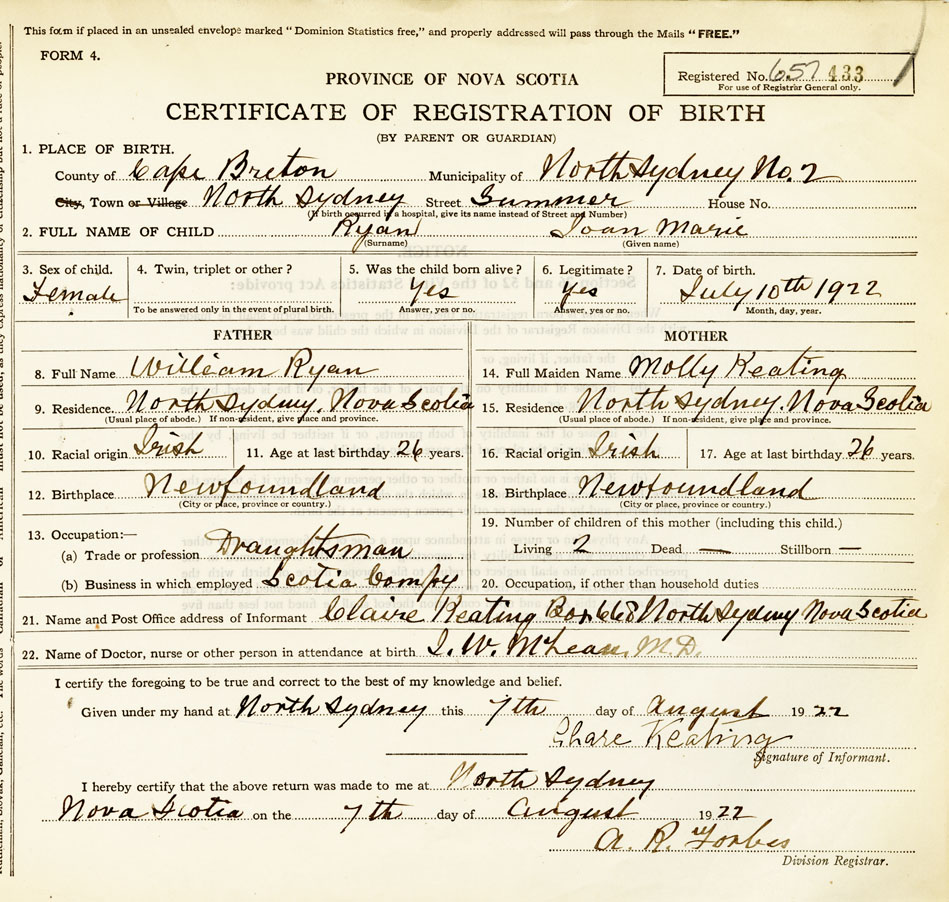 This form if placed in an unsealed envelope marked "Dominion Statistics free," and properly addressed will pass through the Mails "FREE."
FORM 4.
Registered No. 657 433
For use of Registrar General only.
PROVINCE OF NOVA SCOTIA
CERTIFICATE OF REGISTRATION OF BIRTH
(BY PARENT OR GUARDIAN)
1. PLACE OF BIRTH.
County of Cape Breton Municipality of North Sydney No. 2
City, Town or Village North Sydney Street Summer House No.
(If birth occurred in a hospital, give its name instead of Street and Number)
2. FULL NAME OF CHILD Ryan Joan Marie
(Surname) (Given name)
3. Sex of child. 4. Twin, triplet or other? 5. Was the child born alive? 6. Legitimate? 7. Date of birth.
Female yes yes July 10th 1922
To be answered only in the event of plural birth. Answer, yes or no. Answer, yes or no. Month, day, year.
FATHER MOTHER
8. Full Name William Ryan 14. Full Maiden Name Molly Keating
9. Residence North Sydney, Nova Scotia 15. Residence North Sydney, Nova Scotia
(Usual place of abode.) If non-resident, give place and province. (Usual place of abode.) If non-resident, give place and province.
10. Racial origin Irish 11. Age at last birthday 26 years. 16. Racial origin Irish 17. Age at last birthday 26 years.
12. Birthplace Newfoundland 18. Birthplace Newfoundland
(City or place, province or country.) (City or place, province or country.)
13. Occupation:— 19. Number of children of this mother (including this child.)
(a) Trade or profession Draughtsman Living 2 Dead — Stillborn —
(b) Business in which employed Scotia Compy 20. Occupation, if other than household duties
21. Name and Post Office address of Informant Claire Keating Box 668 North Sydney Nova Scotia
22. Name of Doctor, nurse or other person in attendance at birth J. W. McLean, M.D.
I certify the foregoing to be true and correct to the best of my knowledge and belief.
Given under my hand at North Sydney this 7th day of August 1922
Keating
Signature of Informant.
I hereby certify that the above return was made to me at North Sydney
Nova Scotia on the 7th day of August 1922
A. R. Forbes
Division Registrar.